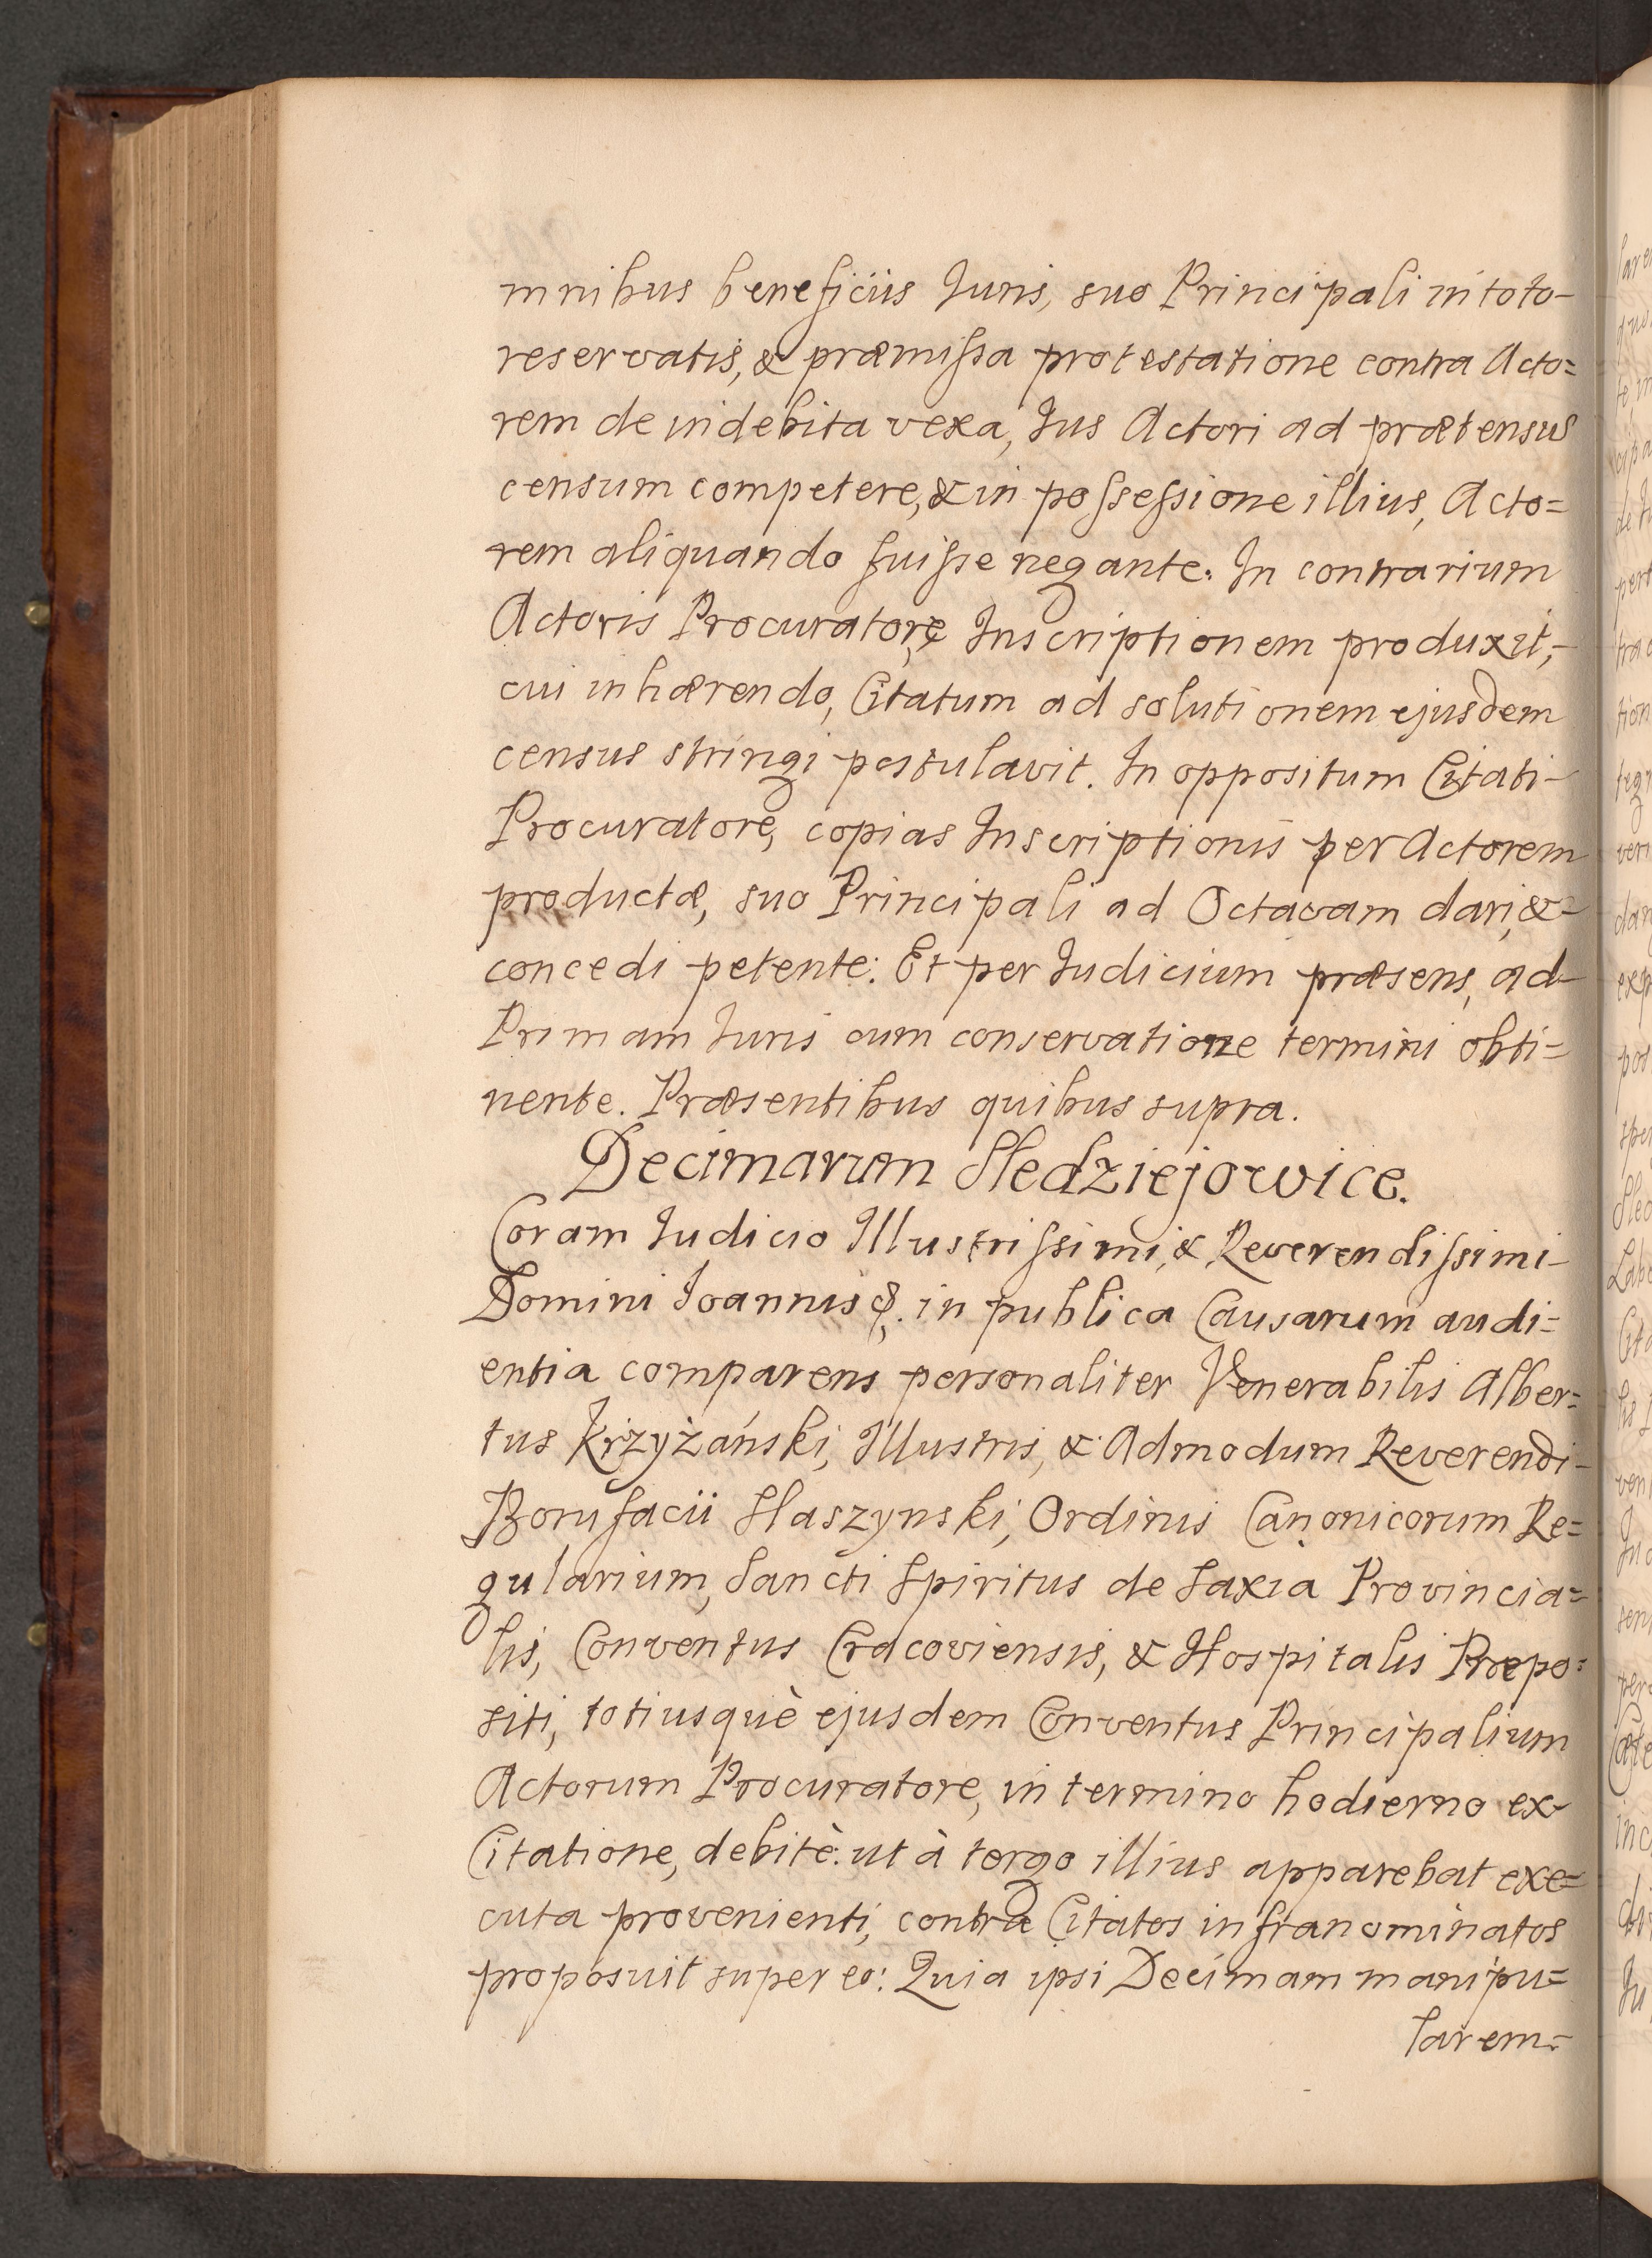 mnibus beneficiis Juris, suo Principali in toto-
reservatis, & præmissa protestatione contra Acto=
rem de indebita vexa, Jus Actori ad prætensus
censum competere, & in possessione illius, Acto=
rem aliquando fuisse negante. In contrarium
Actoris Procuratore Inscriptionem produxit,-
cui inhærendo, Citatum ad solutionem ejusdem
census stringi postulavit. In oppositum Citati-
Procuratore, copias Inscriptionis per Actorem
productæ, suo Principali ad Octavam dari, &-
concedi petente: Et per Judicium præsens, ad-
Primam Juris cum conservatione termini obti=
nente. Præsentibus quibus supra.
Decimarum Sledziejowice.
Coram Judicio Illustrissimi, & Reverendissimi-
Domini Joannis &. in publica Causarum audi=
entia comparens personaliter Venerabilis Alber=
tus Krzyżański, Illustris, & Admodum Reverendi-
Bonifacii Staszynski, Ordinis Canonicorum Re=
gularium, Sancti Spiritus de Saxia Provincia=
lis, Conventus Cracoviensis, & Hospitalis Præpo=
siti, totiusquè ejusdem Conventus Principalium
Actorum Procuratore, in termino hodierno ex-
Citatione, debitè. ut à tergo illius apparebat exe=
cuta provenienti, contra Citatos infranominatos
proposuit super eo: Quia ipsi Decimam manipu=
larem=